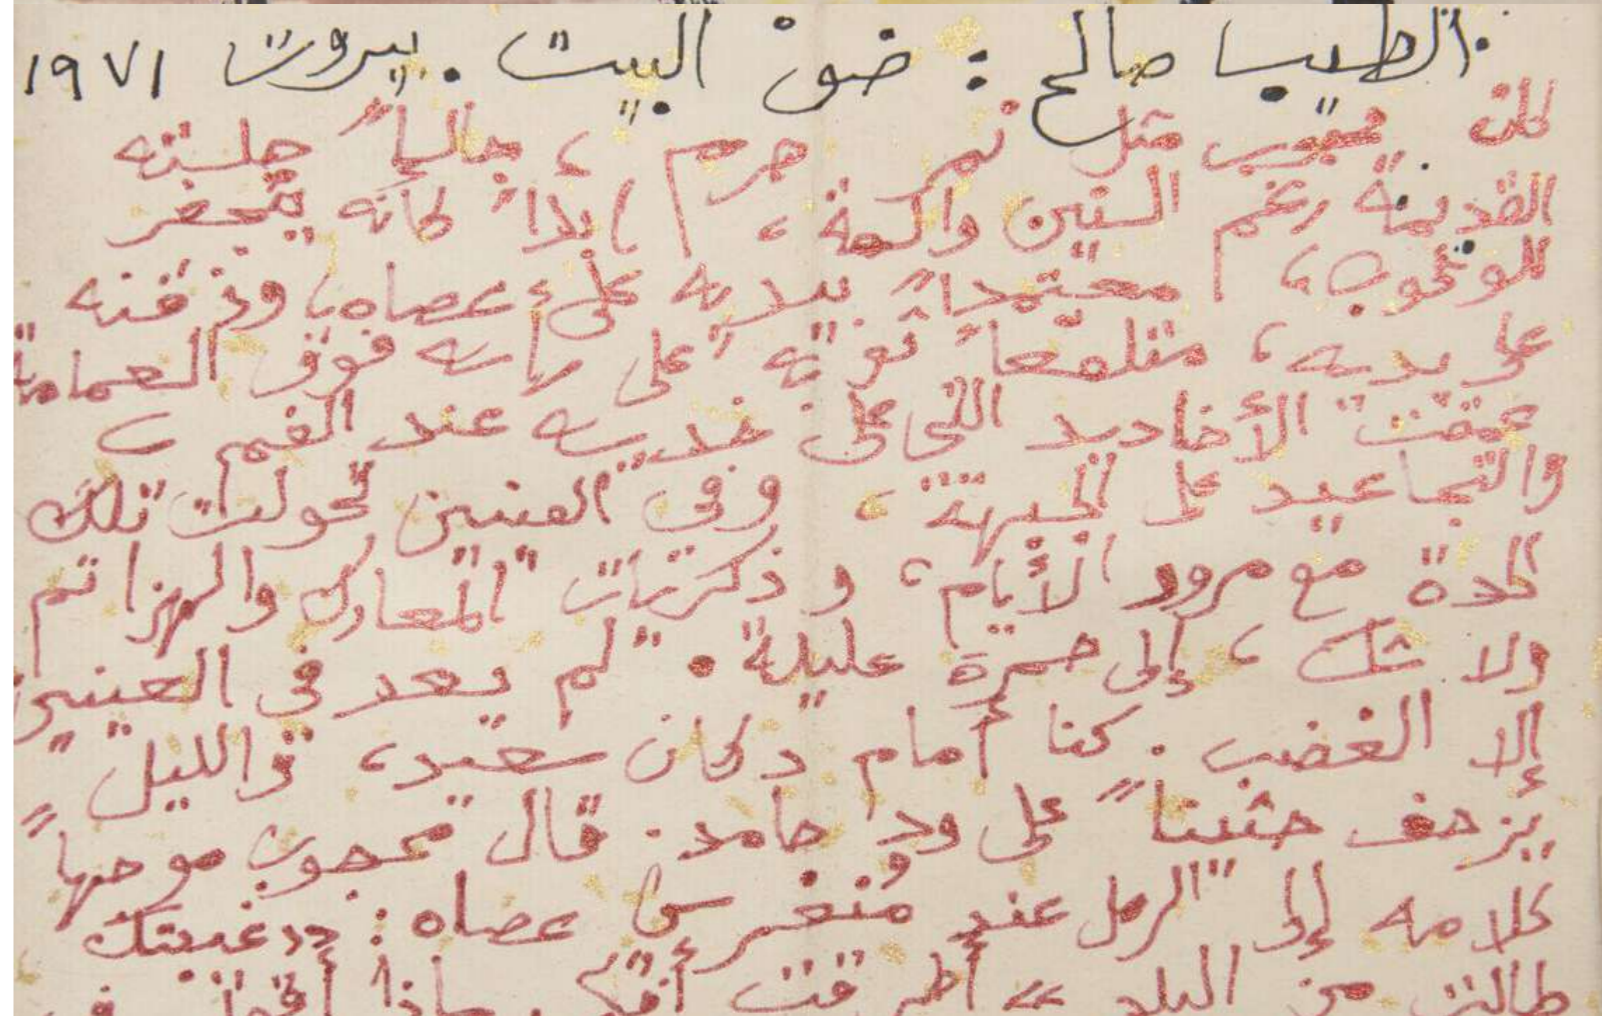 الطيب صالح : ضوْ البيت . بيروت ١٩٧١
كان محجوب مثل نمر هرم ، جالساً جلسته
القديمة رغم السنين والحمة ، أبداً كأنه يتحفز
للوثوب ، معتمداً بيديه على عصاه ، وذقنه
على يديه ، متلفعاً ثوبه على رأسه فوق العمامة
عمقت الأخاديد التي على خديه عند الفم
والتجاعيد على الجبهة ، وفي العينين تحولت تلك
الحدة مع مرور الأيام ، و ذكريات المعارك والهزائم
ولا شك ، إلى حمرة عليلة . لم يعد في العينين
إلا الغضب . كنا أمام دكان سعيد ، والليل
يزحف حثيثاً على ود حامد . قال محجوب موجهاً
كلامه إلى الرمل عند مُنغرس عصاه : « غيبتك
طالت من البلد » أطرقت أفكر . ماذا أقول في